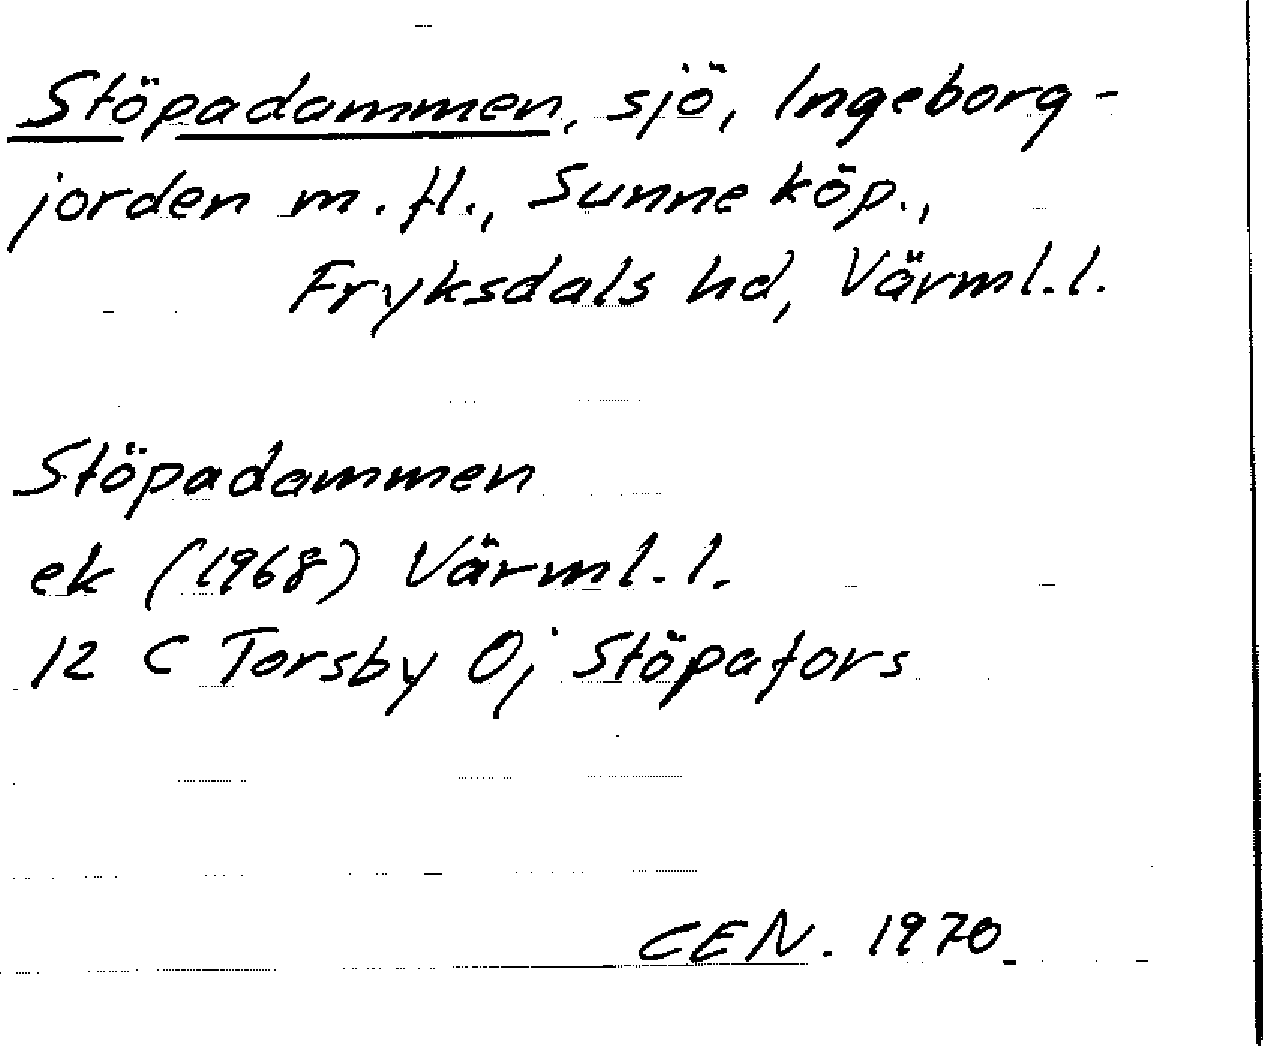 Stöpadammen, sjö, Ingeborg-
jorden m.fl., Sunne köp.,
Fryksdals hd, Värml.l.
Stöpadammen
ek (1968) Värml.l.
12 C Torsby 0j Stöpafors
CEN. 1970.